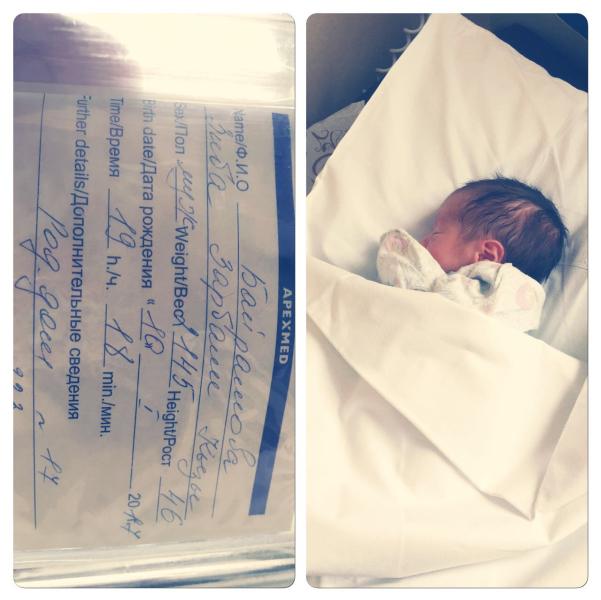 APEXMED
Name/Ф.И.О Байрамова
Зиба Зарбали кызы
Sex/Пол муж Weight/Вес 2145 Height/Рост 46
Birth date/Дата рождения " 10 20 17
Time/Время 19 h./ч. 18 min./мин.
Further details/Дополнительные сведения
Род. дом N 17